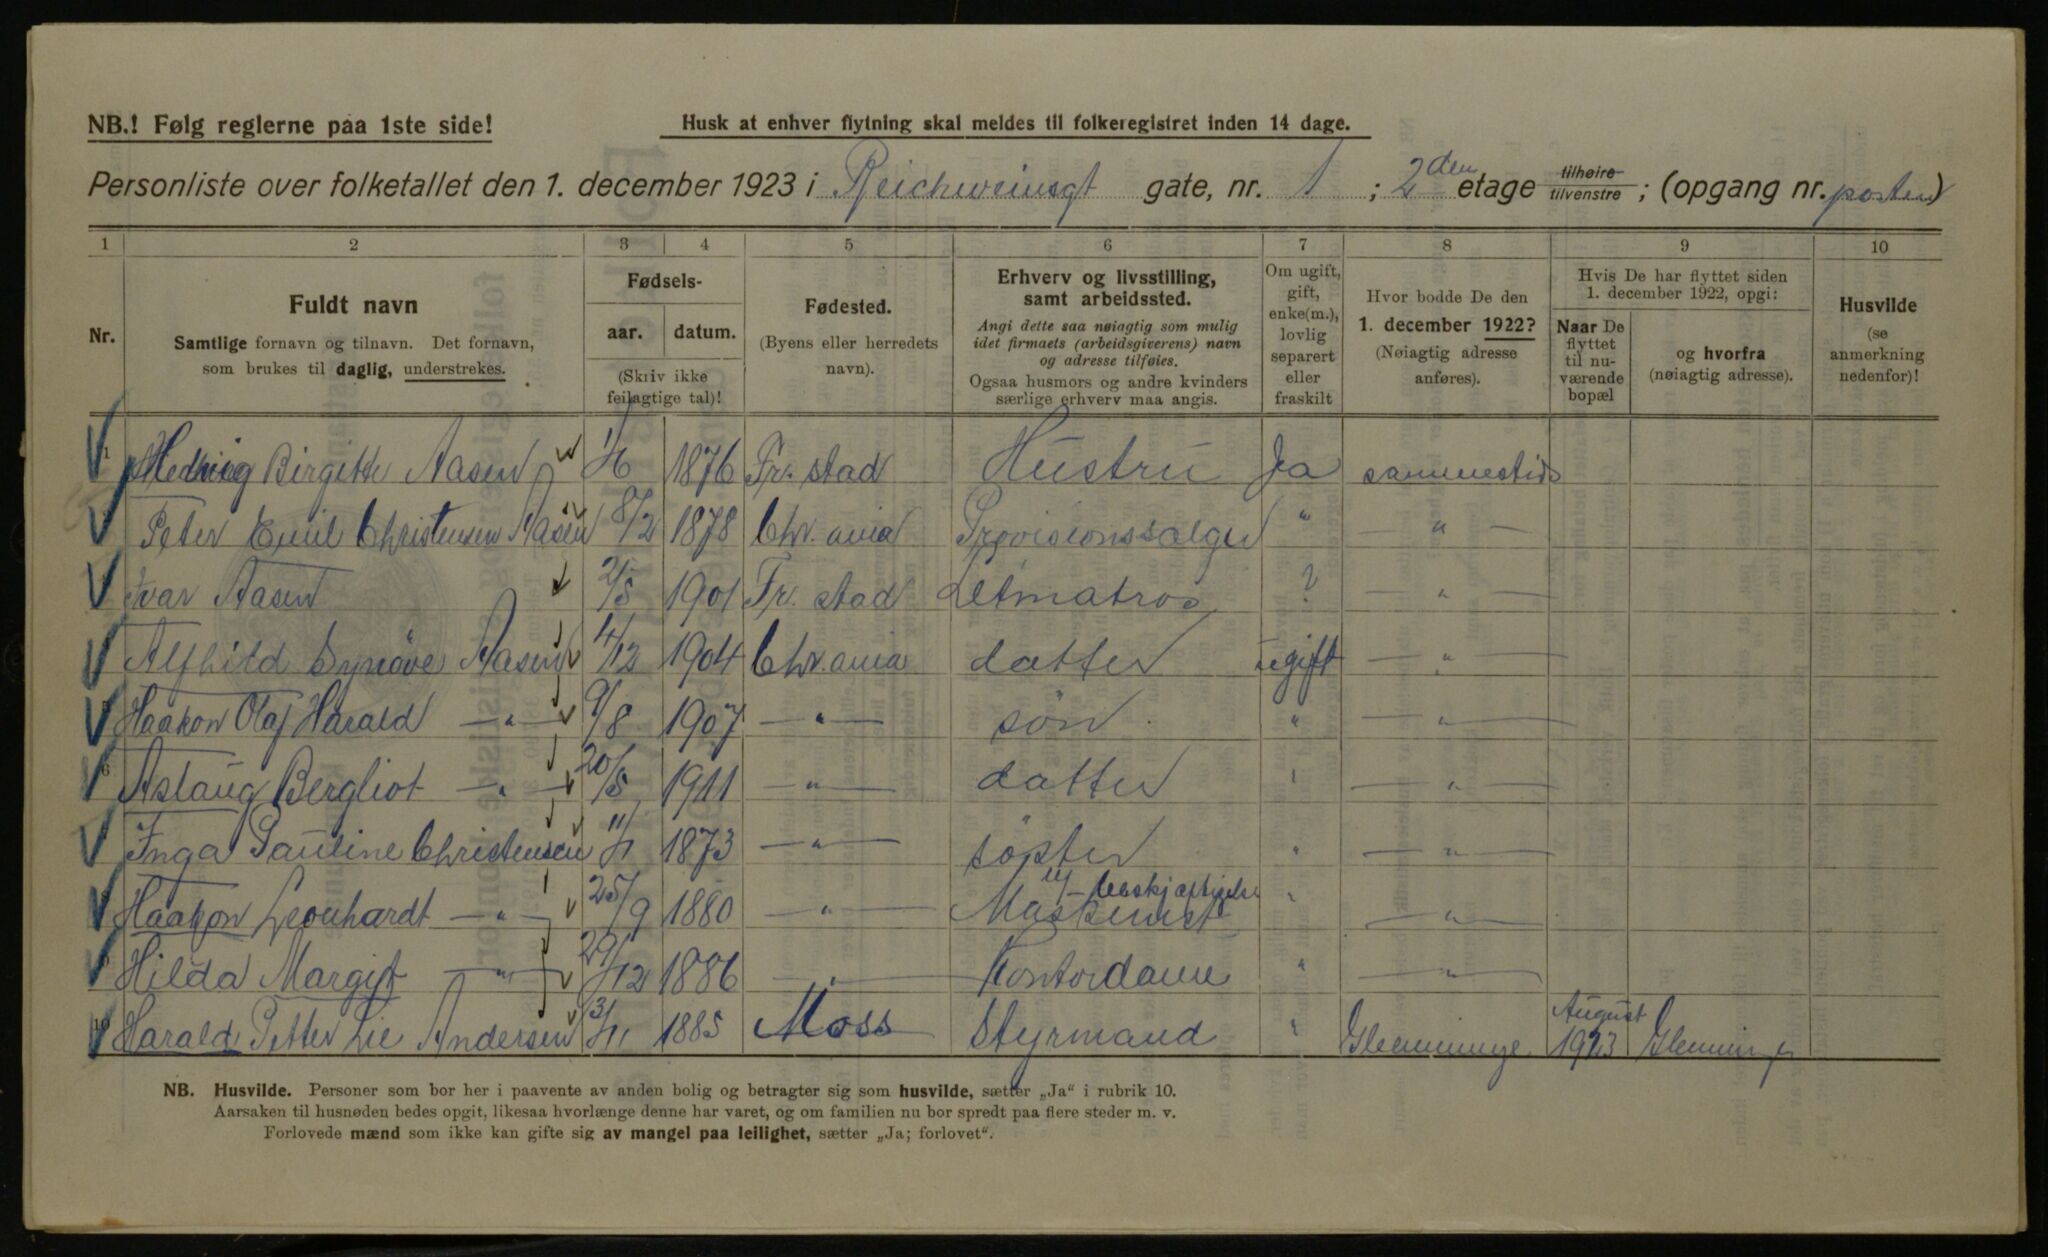 NB.! Følg reglerne paa 1ste side!
Husk at enhver flytning skal meldes til folkeregistret inden 14 dage.
Personliste over folketallet den 1. december 1923 i Reichweinsgt gate, nr. 1 ; 2den etage tilhøire tilvenstre ; (opgang nr. porten)
1 2 3 4 5 6 7 8 9 10
Nr.
Fuldt navn
Samtlige fornavn og tilnavn. Det fornavn,
som brukes til daglig, understrekes.
Fødsels-
aar. datum.
(Skriv ikke
feilagtige tal)!
Fødested.
(Byens eller herredets
navn).
Erhverv og livsstilling,
samt arbeidssted.
Angi dette saa nøiagtig som mulig
idet firmaets (arbeidsgiverens) navn
og adresse tilføies.
Ogsaa husmors og andre kvinders
særlige erhverv maa angis.
Om ugift,
gift,
enke(m.),
lovlig
separert
eller
fraskilt
Hvor bodde De den
1. december 1922?
(Nøiagtig adresse
anføres).
Hvis De har flyttet siden
1. december 1922, opgi:
Naar De
flyttet
til nu-
værende
bopæl
og hvorfra
(nøiagtig adresse).
Husvilde
(se
anmerkning
nedenfor)!
1 Hedvig Birgitte Aasen 1/6 1876 Fr. stad Hustru Ja sammestids
Peter Emil Christensen Aasen 8/2 1878 Chr. ania Provisionssælger " — " —
Ivar Aasen 21/5 1901 Fr. stad Letmatros ? — " —
Alfhild Synöve Aasen 4/12 1904 Chr. ania datter ugift — " —
Haakon Olaf Harald — " — 9/8 1907 — " — sön " — " —
6 Aslaug Bergliot — " — 20/5 1911 — " — datter " — " —
Inga Pauline Christensen 11/1 1873 — " — söster " — " —
Haakon Leonhardt — " — 25/9 1880 — " — Maskinist u/beskjæftigelse " — " —
Hilda Margit — " — 29/12 1886 — " — Kontordame " — " —
10 Harald Petter Lie Andersen 3/11 1885 Moss Styrmand " Glemminge August 1923 Glemminge
NB. Husvilde. Personer som bor her i paavente av anden bolig og betragter sig som husvilde, sætter „Ja" i rubrik 10.
Aarsaken til husnøden bedes opgit, likesaa hvorlænge denne har varet, og om familien nu bor spredt paa flere steder m. v.
Forlovede mænd som ikke kan gifte sig av mangel paa leilighet, sætter „Ja; forlovet".